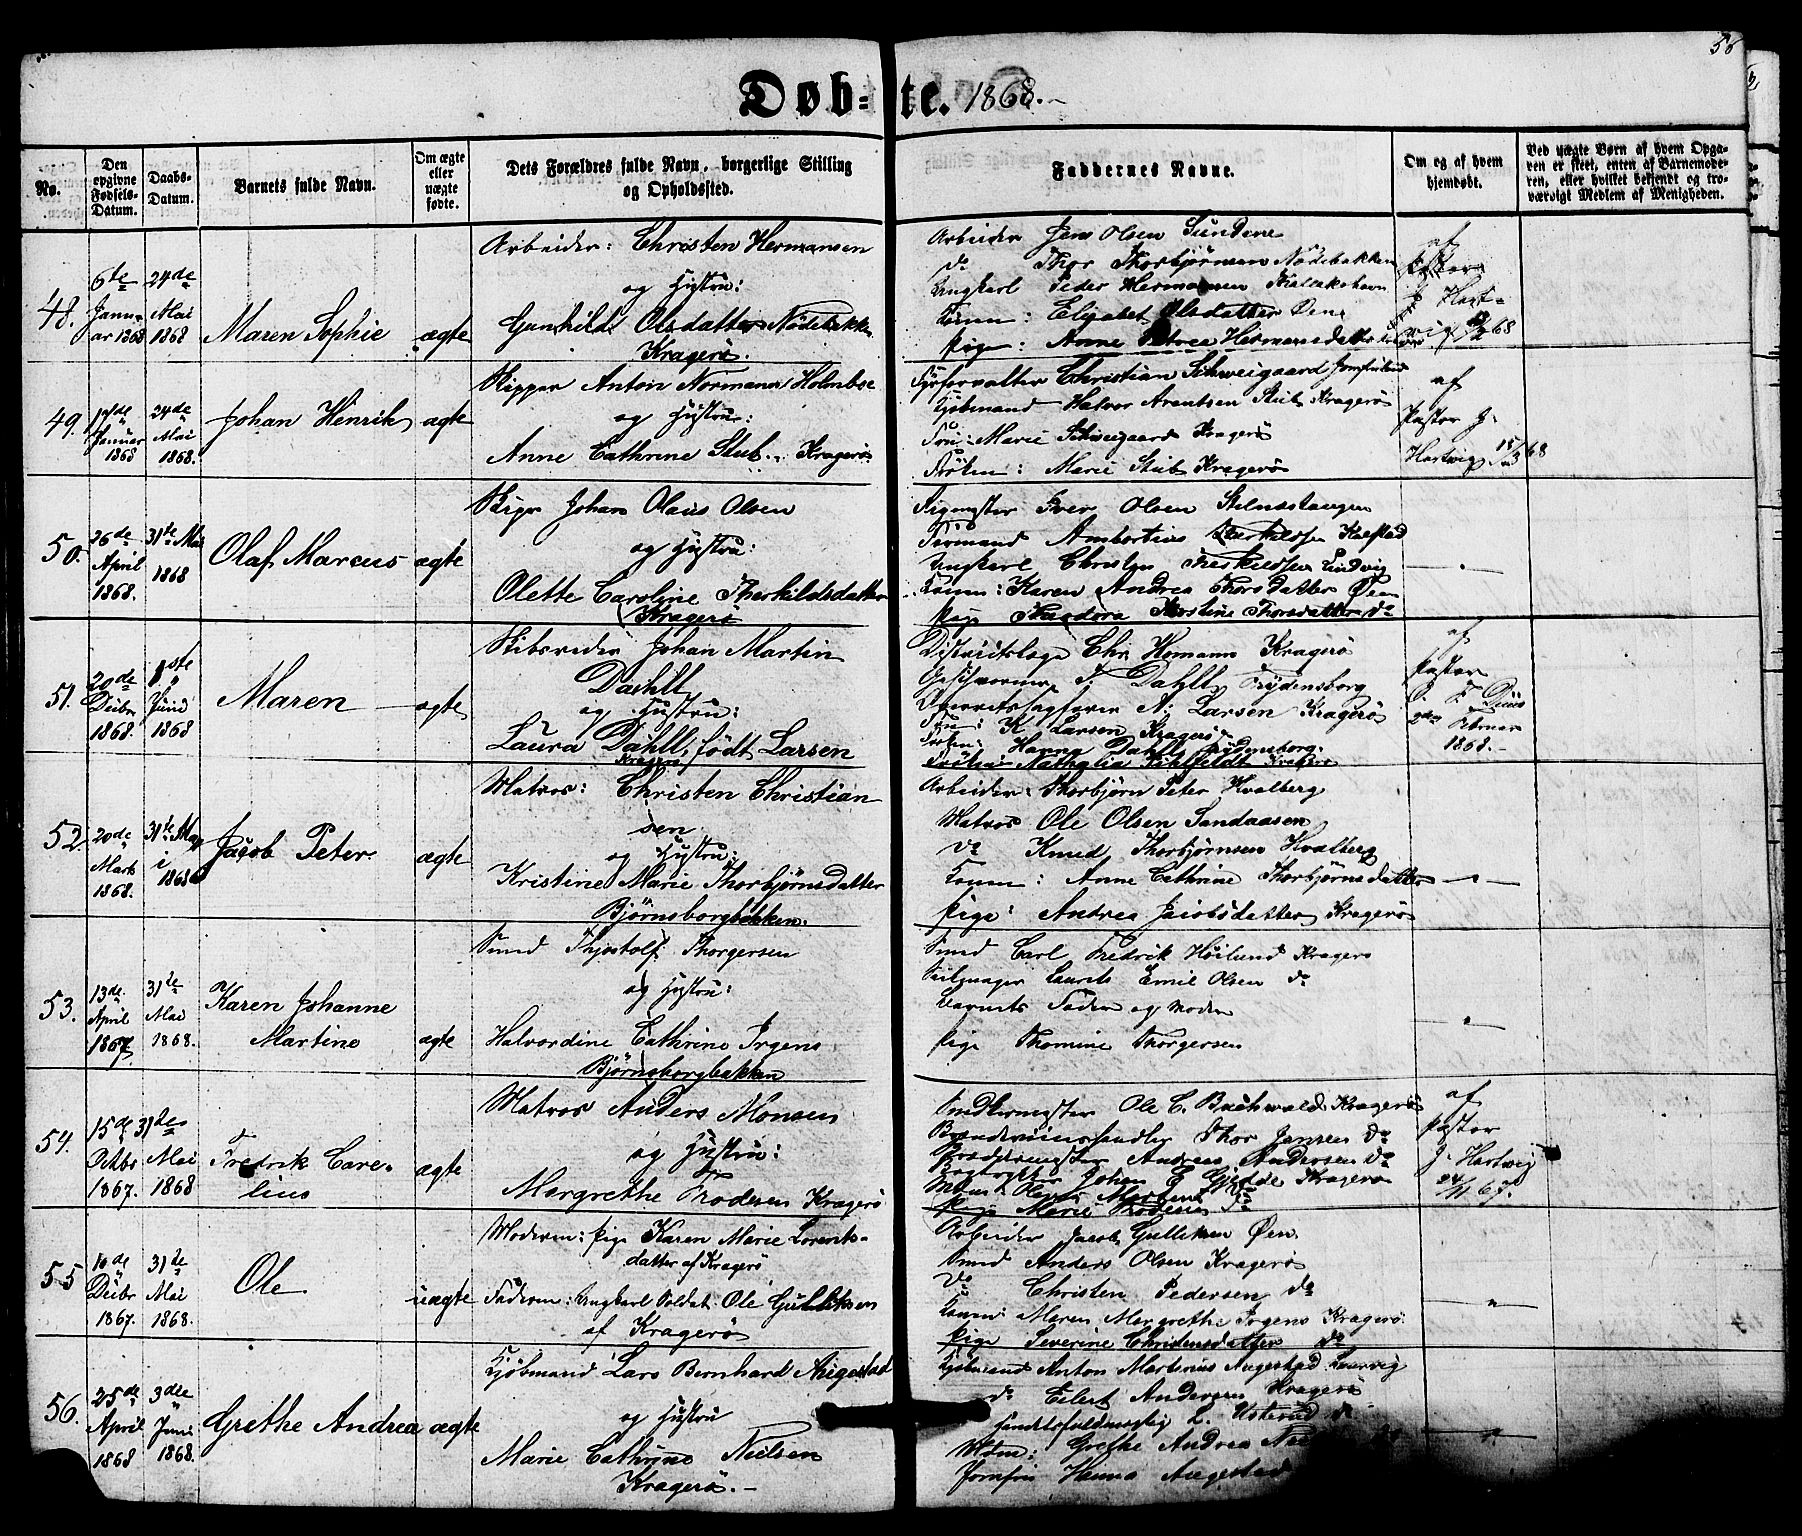 56
Døb-te. 1868.-
No.
Den opgivne Fødsels-Datum.
Daabs-Datum.
Barnets fulde Navn.
Om ægte eller uægte fødte.
Dets Forældres fulde Navn, borgerlige Stilling og Opholdssted.
Faddernes Navne.
Om og af hvem hjemdøbt.
Ved uægte Børn af hvem Opga-
ven er skeet, enten af Barnemode-
ren, eller hvilket bekjendt og tro-
værdigt Medlem af Menigheden.
48.
6te Janu-
ar 1868
24de Mai 1868
Maren Sophie
ægte
Arbeider: Christen Hermansen
og Hustru:
Gunhild Olsdatter Nödebakken
Kragerö.
Arbeider Jens Olsen Sundene
do Thor Thorbjörnsen Nödebakken
Ungkarl Peder Hermansen
Konen: Elisabet Olsdatter Öen
Pige: Anne Petrea Hermansdatter
af
Pastor
J. Hart-
wig 68
49.
17de Januar 1868
24de Mai 1868.
Johan Henrik
ægte
Skipper Anton Normann Holmboe
og Hustru:
Anne Cathrine Stub. Kragerö
Christian Schweigaard
Kjöbmand Halvor Arentsen Stub Kragerö
Fru: Marie Schweigaard Kragerö
Fröken: Marie Stub Kragerö
af
Pastor J.
Hartwig 15/3 68
50.
26de April 1868.
31te Mai 1868
Olaf Marcus
ægte
Skipr Johan Olaus Olsen
og Hustru:
Olette Caroline Therkildsdatter
Kragerö
Rigmester Iver Olsen Stilnestangen
Formand Ambortius Therkildsen Kalstad
Ungkarl Christen Therkildsen Lindvig
Konen: Karen Andrea Thorsdatter Öen
Pige Theodora Kirstine Thorsdatter do
"
51.
20de Decbr 1868.
1ste Juni 1868
Maren
ægte
Skibsreder Johan Martin
Dahll
og Hustru:
Laura Dahll, födt Larsen
Kragerö
Districtslæge Chr. Homann Kragerö
T. Dahll Frydensborg
Overretssagförer N. Larsen Kragerö
Fru: K. Larsen Kragerö
Fröken: Hanna Dahll Frydensborg.
Fröken Nathalia Kragerö
af
Pastor
Februar
1868.-
52
20de Marts 1868.
31te Ma
i 1868
Jacob Peter.
ægte
Matros: Christen Christian
sen
og Hustru:
Kristine Marie Thorbjørnsdatter
Bjørnsborgbakken.
Arbeider Thorbjörn Peter Hvalberg
Matros Ole Olsen Sandaasen
do Knud Thorbjørnsen Hvalberg
Konen: Anne Cathrine Thorbjørnsdatter
Pige: Andrea Jacobsdatter Kragerö
"
53.
13de April 1867.
31te Mai 1868.
Karen Johanne
Martine
ægte
Smed Thjostolf Thorgersen
og Hustru:
Halvordine Cathrine Irgens
Bjørnsborgbakken
Smed Carl Fredrik Höilund Kragerö
Seilmager Laurits Emil Olsen do
Barnets Fader og Moder
Pige Thomine Thorgersen
"
54.
15de Octbr 1867.
31te Mai 1868
Fredrik Care-
lius
ægte
Matros Anders Monsen
og Hustru:
Margrethe Brodersen Kragerö
Snedkermester Ole C. Buchwald Kragerö
Brændeviinshandler Thor Jensen do
Andreas Andersen do
Johan E Gjedde Kragerö
Pige Marie do
af
Pastor
J. Hartwig
24/11 67.
55
10de Decbr 1867.
31te Mai 1868.
Ole
uægte
Moderen: Pige Karen Marie Lorents-
datter af Kragerö
Faderen: Ungkarl Soldat Ole Gulliksen
af Kragerö
Arbeider Jacob Gulliksen Öen
Smed Anders Olsen Kragerö
do Christen Pedersen do
Konen: Maren Margrethe Irgens Kragerö
Pige Severine Christensdatter do
"
56.
25de April 1868
3die Juni 1868.
Grethe Andrea
ægte
Kjöbmand Lars Bernhard Augestad
og Hustru
Marie Cathrine Nielsen
Kragerö.-
Kjöbmand Anton Martinius Augestad Laurvig
do Eilert Andersen Kragerö
L. Usterud do
Mdm: Grethe Andrea
Jomfru Hanna Augestad
"